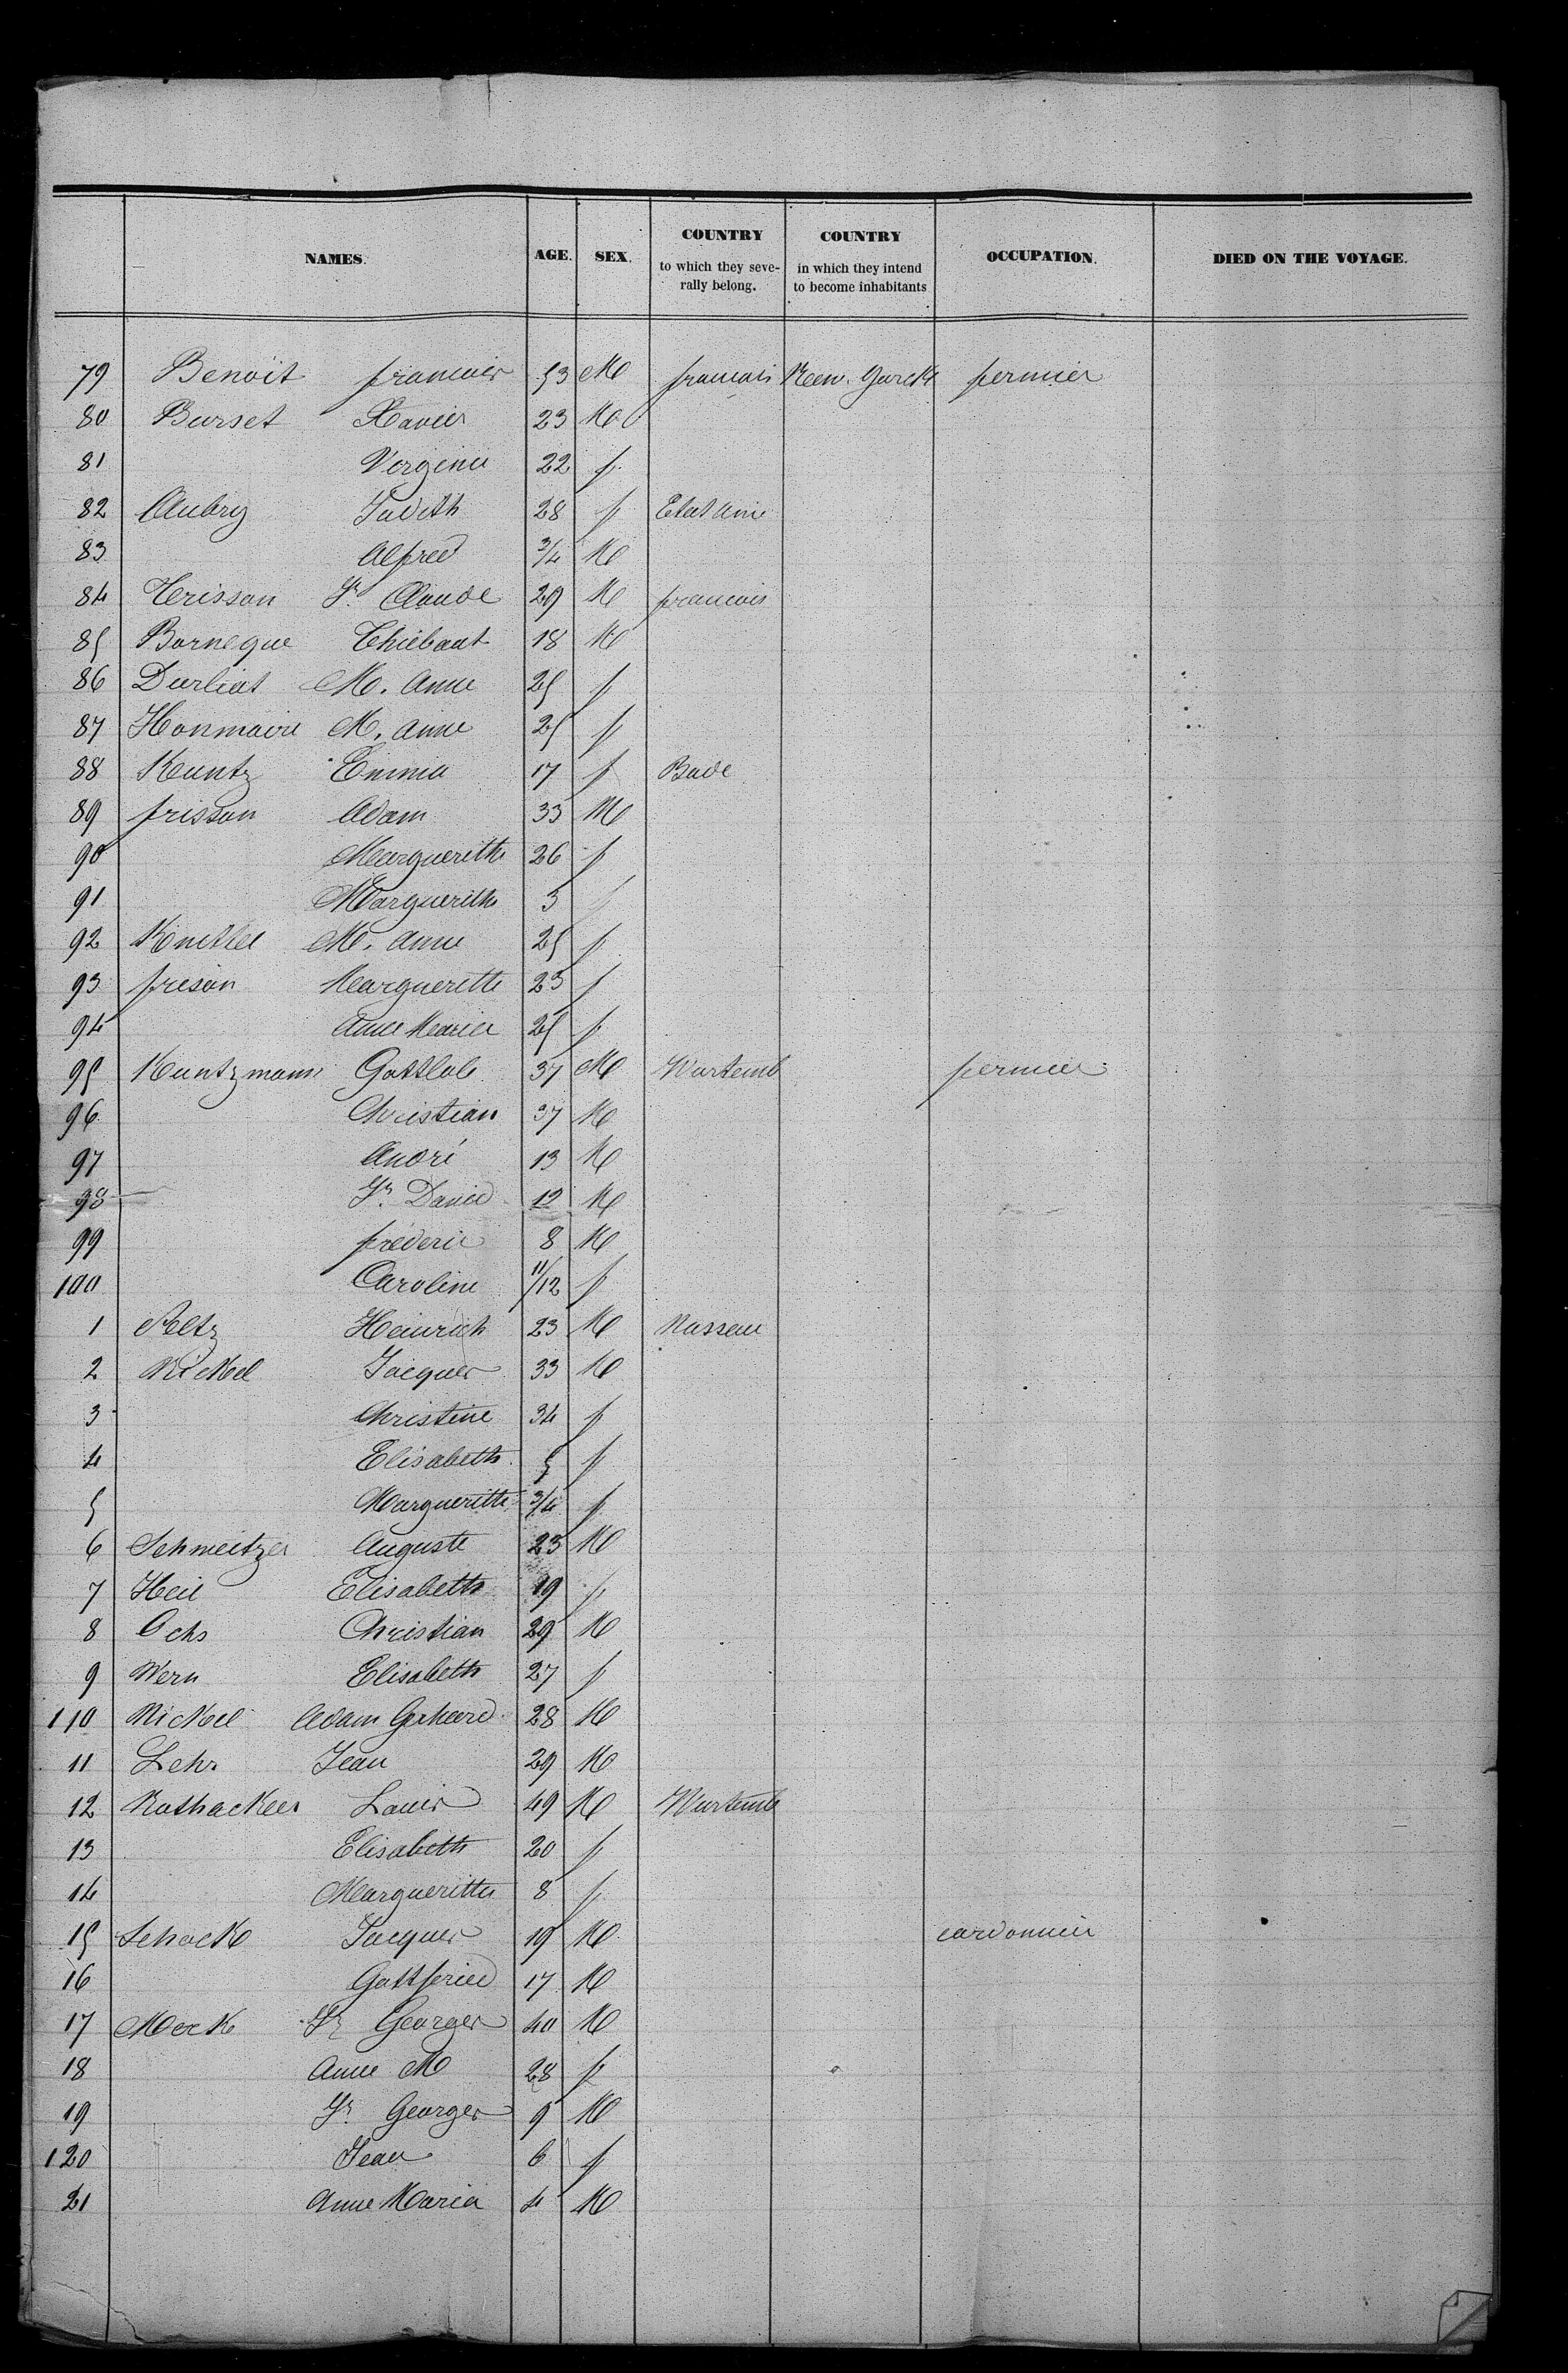 NAMES. AGE. SEX. COUNTRY to which they severally belong. COUNTRY in which they intend to become inhabitants OCCUPATION. DIED ON THE VOYAGE.
79 Benoit francois 53 M francais New. Yorck fermier
80 Burset Xavier 23 M
81 Verginie 22 f
82 Aubry Judith 28 f Etat Unie
83 Alfred 3/4 M
84 Terisson Jn Claude 29 M francais
85 Borneque Thiebaut 18 M
86 Durliat M. Anne 25 f
87 Honmaire M. Anne 25 f
88 Kuntz Emma 17 f Bade
89 frisson Adam 33 M
90 Margueritte 26 f
91 Margueritte 3 f
92 M. Anne 25 f
93 frison Margueritte 23 f
94 Anne Marie 25 f
95 Kuntzmann Gottlob 37 M Wurtemb fermier
96 Christian 37 M
97 André 13 M
98 Jn David 12 M
99 fréderic 8 M
100 Caroline 11/12 f
1 Peltz Heinrich 23 M Nassau
2 Nickel Jacques 33 M
3 Christine 34 f
4 Elisabeth 5 f
5 Margueritte 3/4 f
6 Schmeitzer Auguste 23 M
7 Heil Elisabeth 19 f
8 Ochs Christian 29 M
9 Wern Elisabeth 27 f
110 Nickel Adam Gerhard 28 M
11 Lehr Jean 29 M
12 Rothacker Louis 49 M Wurtemb
13 Elisabeth 20 f
14 Margueritte 8 f
15 Schack Jacques 19 M cordonnier
16 Gottfried 17 M
17 Mock Jn Georges 40 M
18 Anne M 28 f
19 Jn Georges 9 M
120 Jean 6 f
21 Anne Maria 4 M